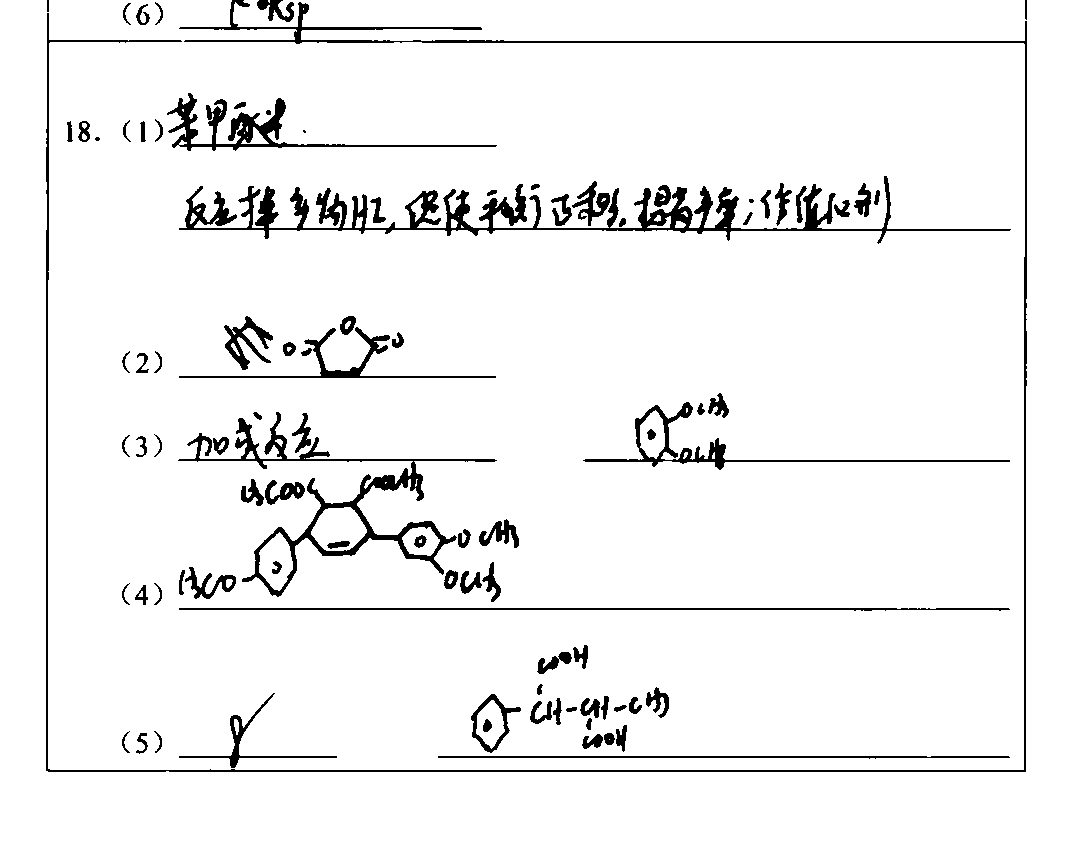 (6) Ksp
18. (1) 苯甲
反应掉产物HI, 促使平衡正移, 提高产率; 作催化剂
(2) O O O
(3) 加成反应 OCH3
OCH3
H3COOC COOCH3
OCH3
(4) H3CO OCH3
COOH
(5) CH-CH-CH3
COOH